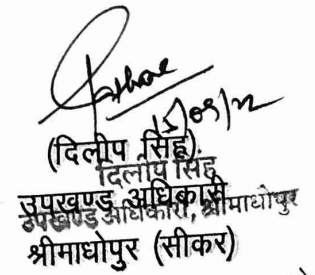 (दिलीप सिंह)
दिलीप सिंह
उपखण्ड अधिकारी
उपखण्ड अधिकारी, श्रीमाधोपुर
श्रीमाधोपुर (सीकर)